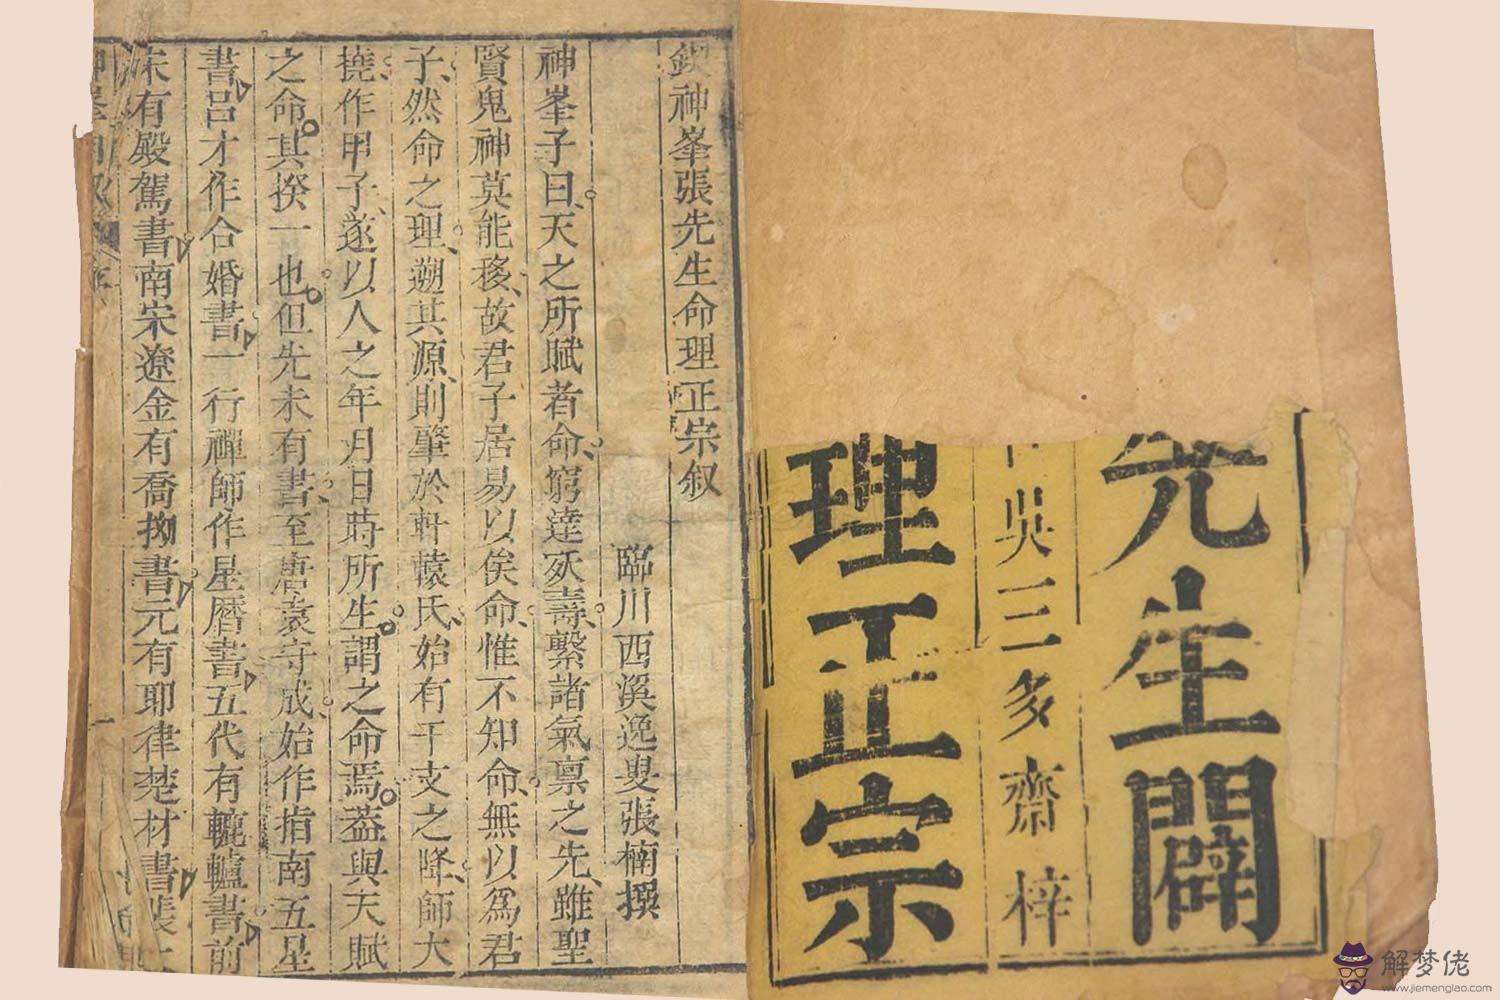 先生闢
吳三多齋梓
理正宗
鍥神峯張先生命理正宗叙
臨川西溪逸叟張楠撰
神峯子曰天之所賦者命窮達殀壽繫諸氣禀之先雖聖
賢鬼神莫能移故君子居易以俟命惟不知命無以爲君
子然命之理遡其源則肇於軒轅氏始有干支之降師大
撓作甲子遂以人之年月日時所生謂之命焉葢與天賦
之命其揆一也但先未有書至唐袁守成始作指南五星
書呂才作合婚書一行禪師作星曆書五代有轆轤書前
宋有殿駕書南宋遼金有喬拗書元有耶律楚材書
解梦佬
www.jiemenglao.com